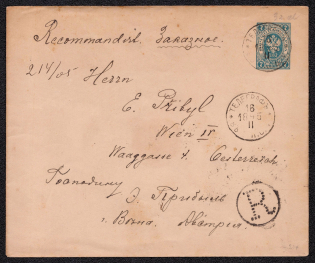 Recommandirt. Заказное.
214/05 Herrn
E. Pribyl
Wien IV
Waaggasse 4. Oesterreich.
Господину
Э. Прибыль
г. Вѣна. Австрія.
18
II
R